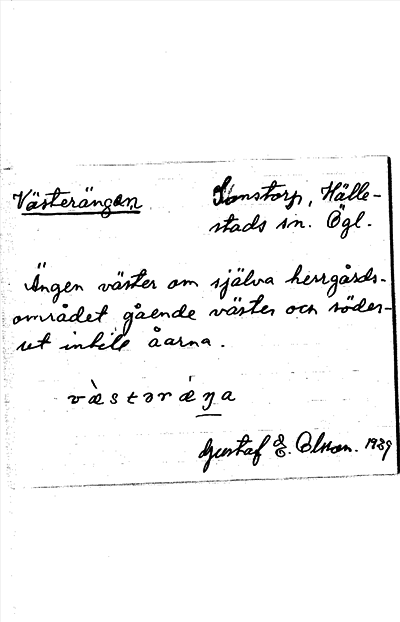 Västerängen
Sonstorp, Hälle-
stads sn. Ögl.
Ängen väster om själva herrgårds-
området gående väster och söder-
ut intill åarna.
vä̀stərä́ŋa
Gustaf E. Olsson. 1939